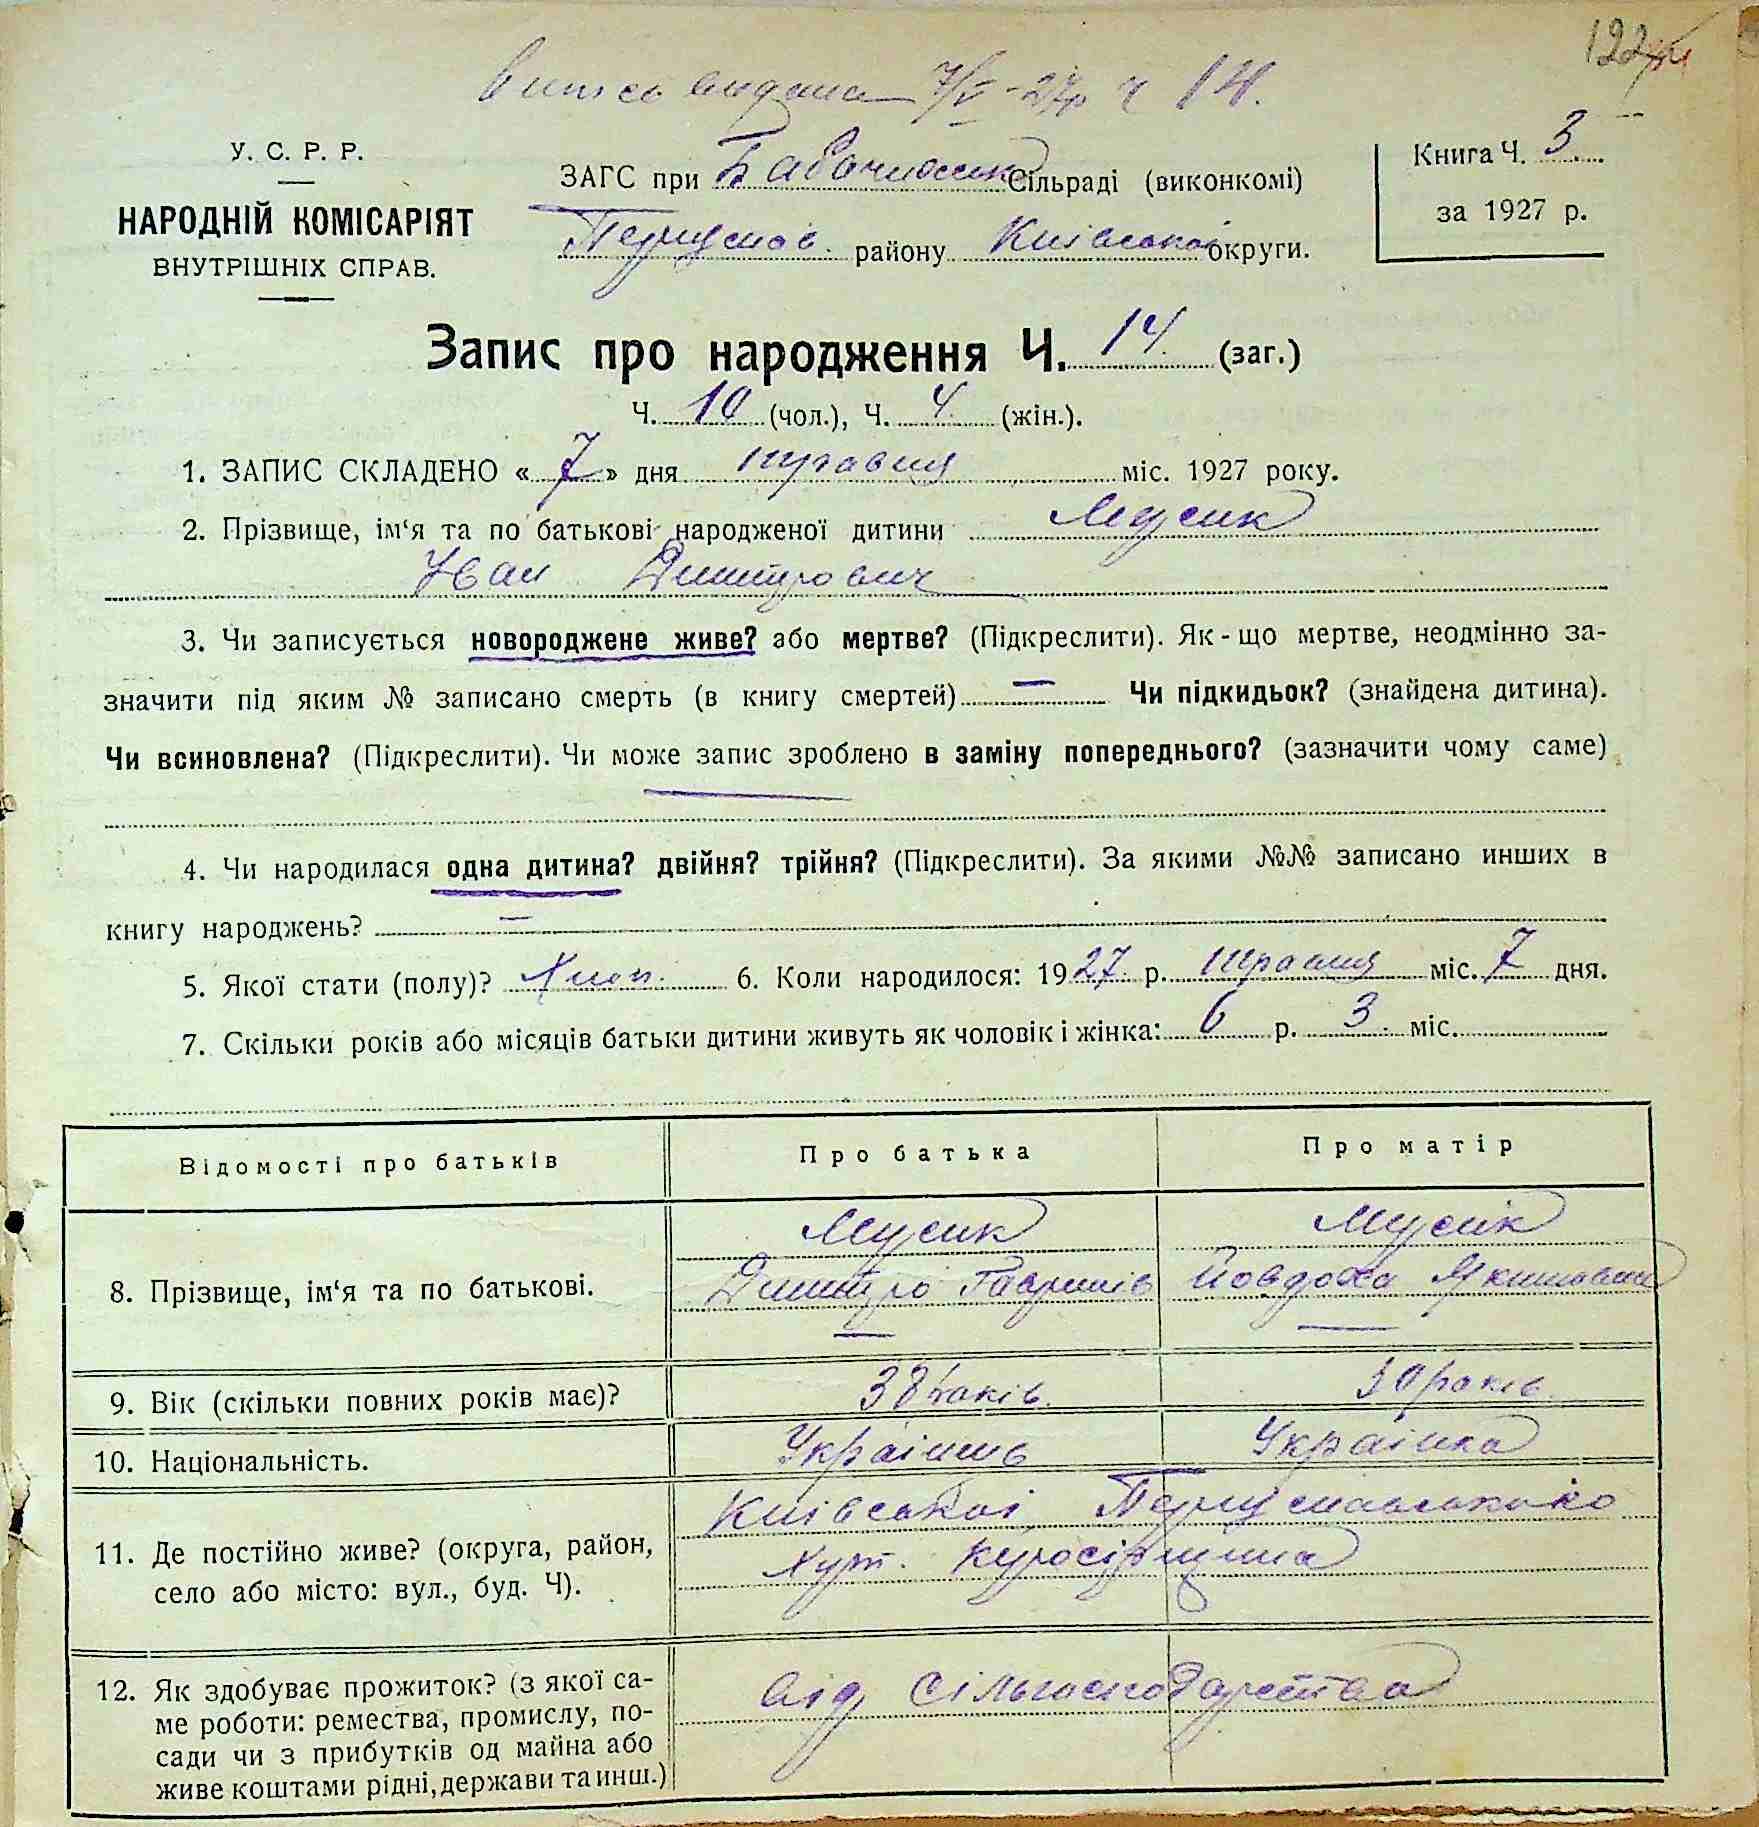 122
Витяг видана 7/V-27р Ч 14.
У. С. Р. Р.
НАРОДНІЙ КОМІСАРІЯТ
ВНУТРІШНІХ СПРАВ.
ЗАГС при Бабачиській Сільраді (виконкомі)
району Київської округи.
Книга Ч. 3
за 1927 р.
Запис про народження Ч. 14 (заг.)
Ч. 10 (чол.), Ч. 4 (жін.).
1. ЗАПИС СКЛАДЕНО « 7 » дня травня міс. 1927 року.
2. Прізвище, ім'я та по батькові народженої дитини Мусик
Іван Дмитрович
3. Чи записується новороджене живе? або мертве? (Підкреслити). Як-що мертве, неодмінно за-
значити під яким № записано смерть (в книгу смертей) — Чи підкидьок? (знайдена дитина).
Чи всиновлена? (Підкреслити). Чи може запис зроблено в заміну попереднього? (зазначити чому саме)
4. Чи народилася одна дитина? двійня? трійня? (Підкреслити). За якими №№ записано инших в
книгу народжень? —
5. Якої стати (полу)? Хлоп. 6. Коли народилося: 1927 р. травня міс. 7 дня.
7. Скільки років або місяців батьки дитини живуть як чоловік і жінка: 6 р. 3 міс.
Відомості про батьків Про батька Про матір
8. Прізвище, ім'я та по батькові. Мусик Мусік
Дмитро Гаврилів Йовдоха Якимовна
9. Вік (скільки повних років має)? 38 років. 30 років.
10. Національність. Українець Українка
11. Де постійно живе? (округа, район, село або місто: вул., буд. Ч). Київської
Хут.
12. Як здобуває прожиток? (з якої са-
ме роботи: ремества, промислу, по-
сади чи з прибутків од майна або
живе коштами рідні, держави та инш.)
від сільгосподарства